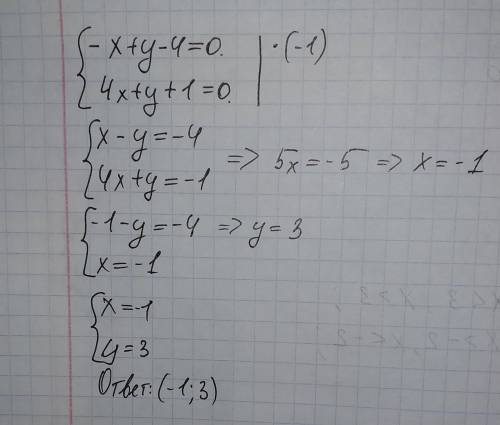 {-x+y-4=0. | ·(-1)
4x+y+1=0.
{x-y=-4
4x+y=-1 => 5x=-5 => x=-1
{-1-y=-4 => y=3
x=-1
{x=-1
y=3
Ответ: (-1;3)